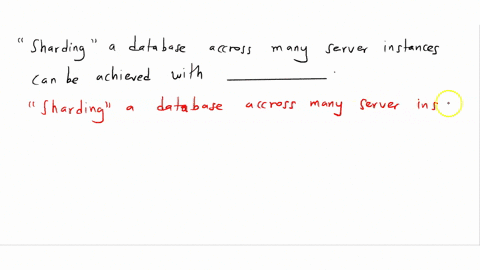 "Sharding" a database accross many server instances
can be achieved with __________ .
"Sharding" a database accross many server ins